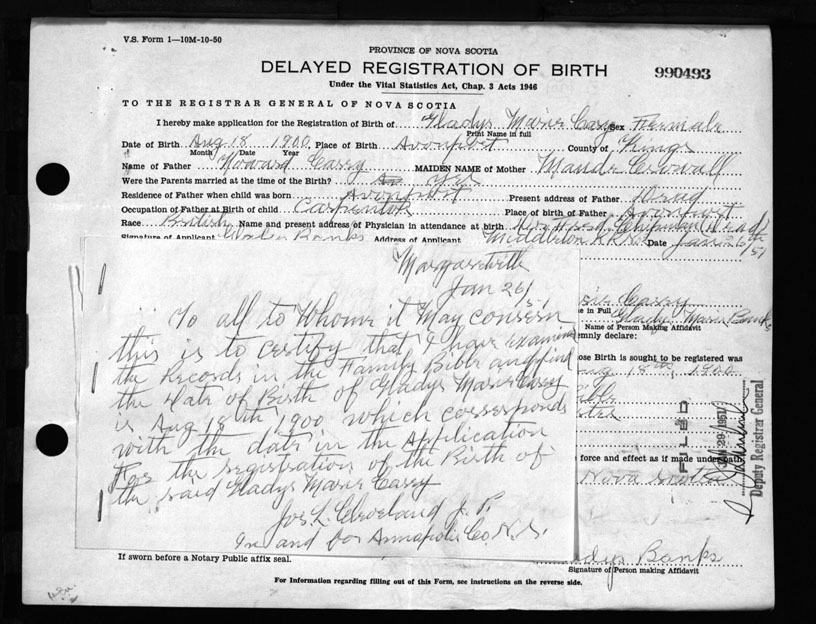 V.S. Form 1—10M-10-50
PROVINCE OF NOVA SCOTIA
DELAYED REGISTRATION OF BIRTH
990493
Under the Vital Statistics Act, Chap. 3 Acts 1946
TO THE REGISTRAR GENERAL OF NOVA SCOTIA
I hereby make application for the Registration of Birth of Gladys Marie Casey Sex Female
Print Name in full
Date of Birth Aug 18 1900 Place of Birth Avonport County of Kings
Month Date Year
Name of Father Howard Casey MAIDEN NAME of Mother Maude Crowell
Were the Parents married at the time of the Birth? Yes
Residence of Father when child was born Avonport Present address of Father Dead
Occupation of Father at Birth of child Carpenter Place of birth of Father Avonport
Race British Name and present address of Physician in attendance at birth Chipman (Dead)
Signature of Applicant Gladys Banks Address of Applicant Middleton R R Date Jan 26th/51
Margaretville
Jan 26/51
To all to Whom it May consern
this is to certify that I have examined
the Records in the Family Bible and find
the Date of Birth of Gladys Marie Casey
is Aug 18th 1900 which corresponds
with the date in the Application
For the registration of the Birth of
the said Gladys Marie Casey
Jos. L. Cleveland J. P.
In and for Annapolis Co. N.S.
Casey
e in Full Gladys Marie Banks
Name of Person Making Affidavit
emnly declare:
ose Birth is sought to be registered was
Aug 18th, 1900
force and effect as if made under oath
Nova Scotia
FILED
JAN 29 1951
Deputy Registrar General
If sworn before a Notary Public affix seal.
Gladys Banks
Signature of Person making Affidavit
For Information regarding filling out of this Form, see instructions on the reverse side.